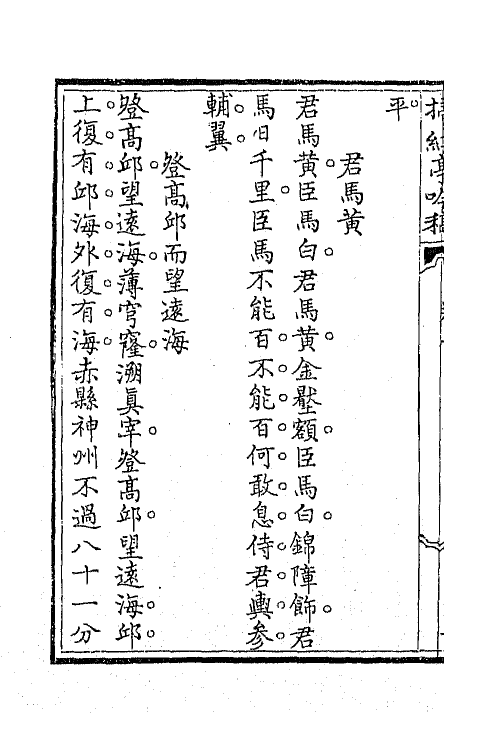 平
君馬黄
君馬黄臣馬白君馬黄金壓額臣馬白錦障飾君
馬日千里臣馬不能百不能百何敢息侍君輿參
輔翼
登高邱而望遠海
登高邱望遠海薄穹窿溯眞宰登高邱望遠海邱
上復有邱海外復有海赤縣神州不過八十一分